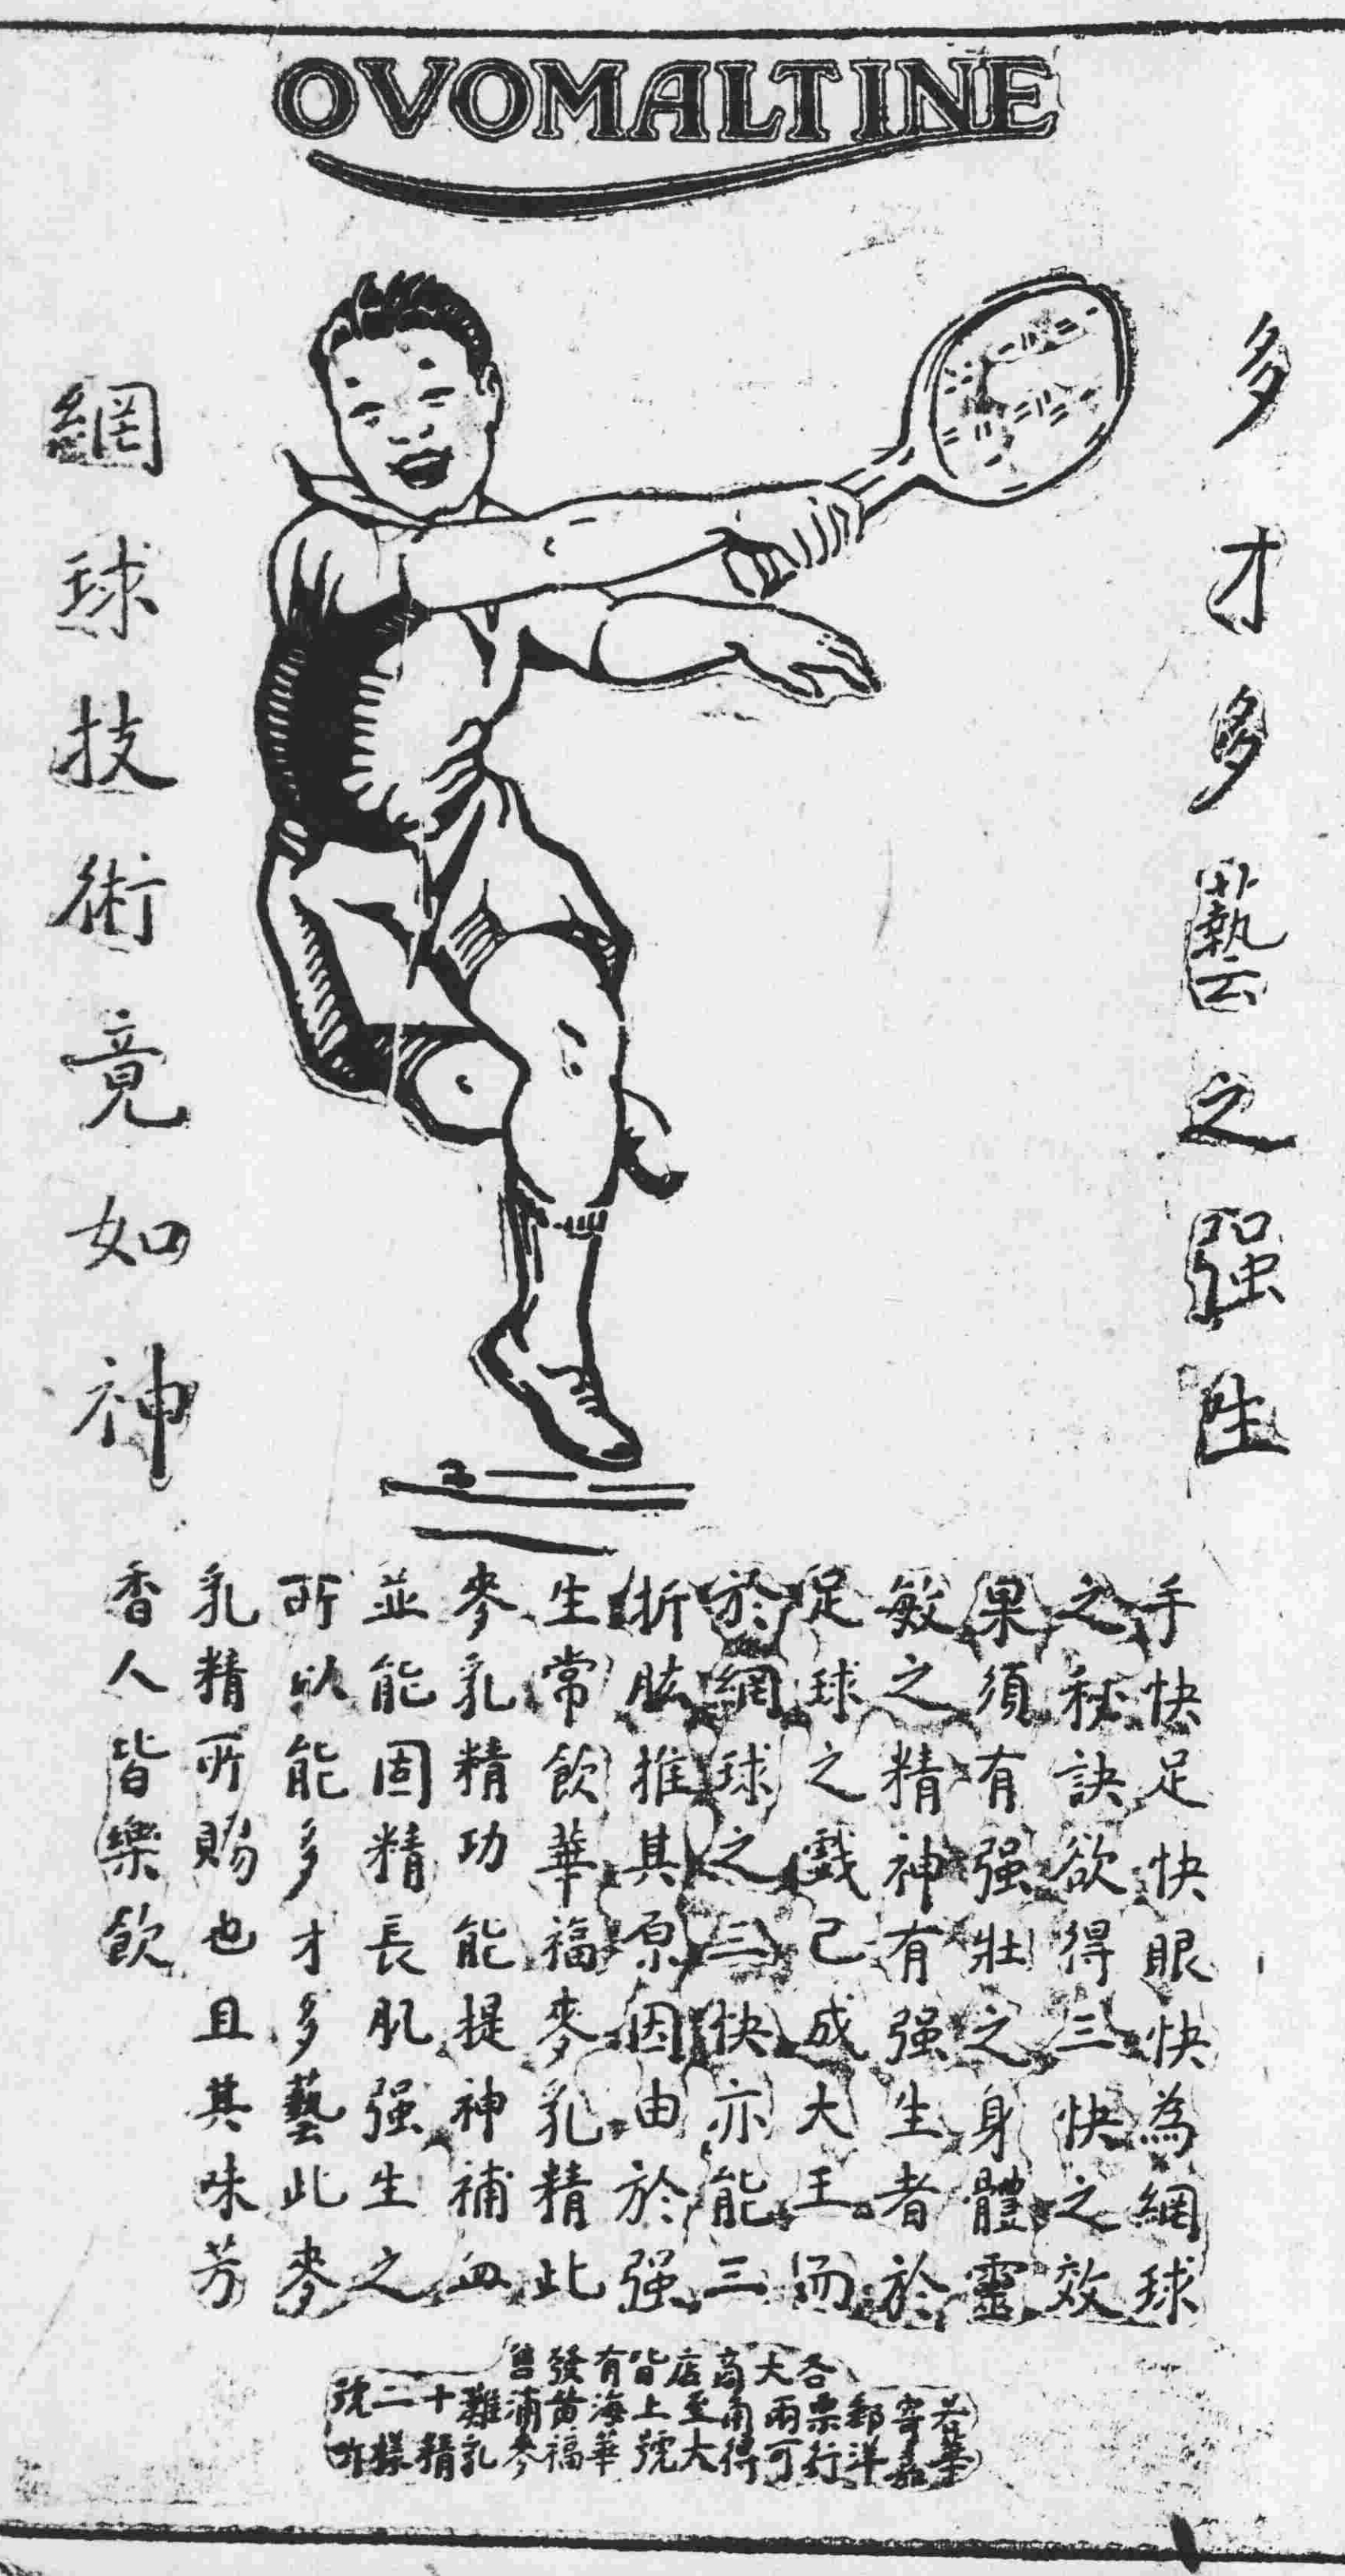 OVOMALTINE
多才多藝之强生
網球技術竟如神
手快足快眼快為網球
之秘訣欲得三快之效
果須有强壯之身體靈
敏之精神有强生者於
足球之戲己成大王而
於網球之三快亦能三
折肱推其原因由於强
生常飲華福麥乳精此
麥乳精功能提神補血
並能固精長肌强生之
所以能多才多藝此麥
乳精所賜也且其味芳
香人皆樂飲
各大商店皆有發售
若寄郵票兩角至上海黄浦灘十二號
華嘉洋行可得大號華福麥乳精樣